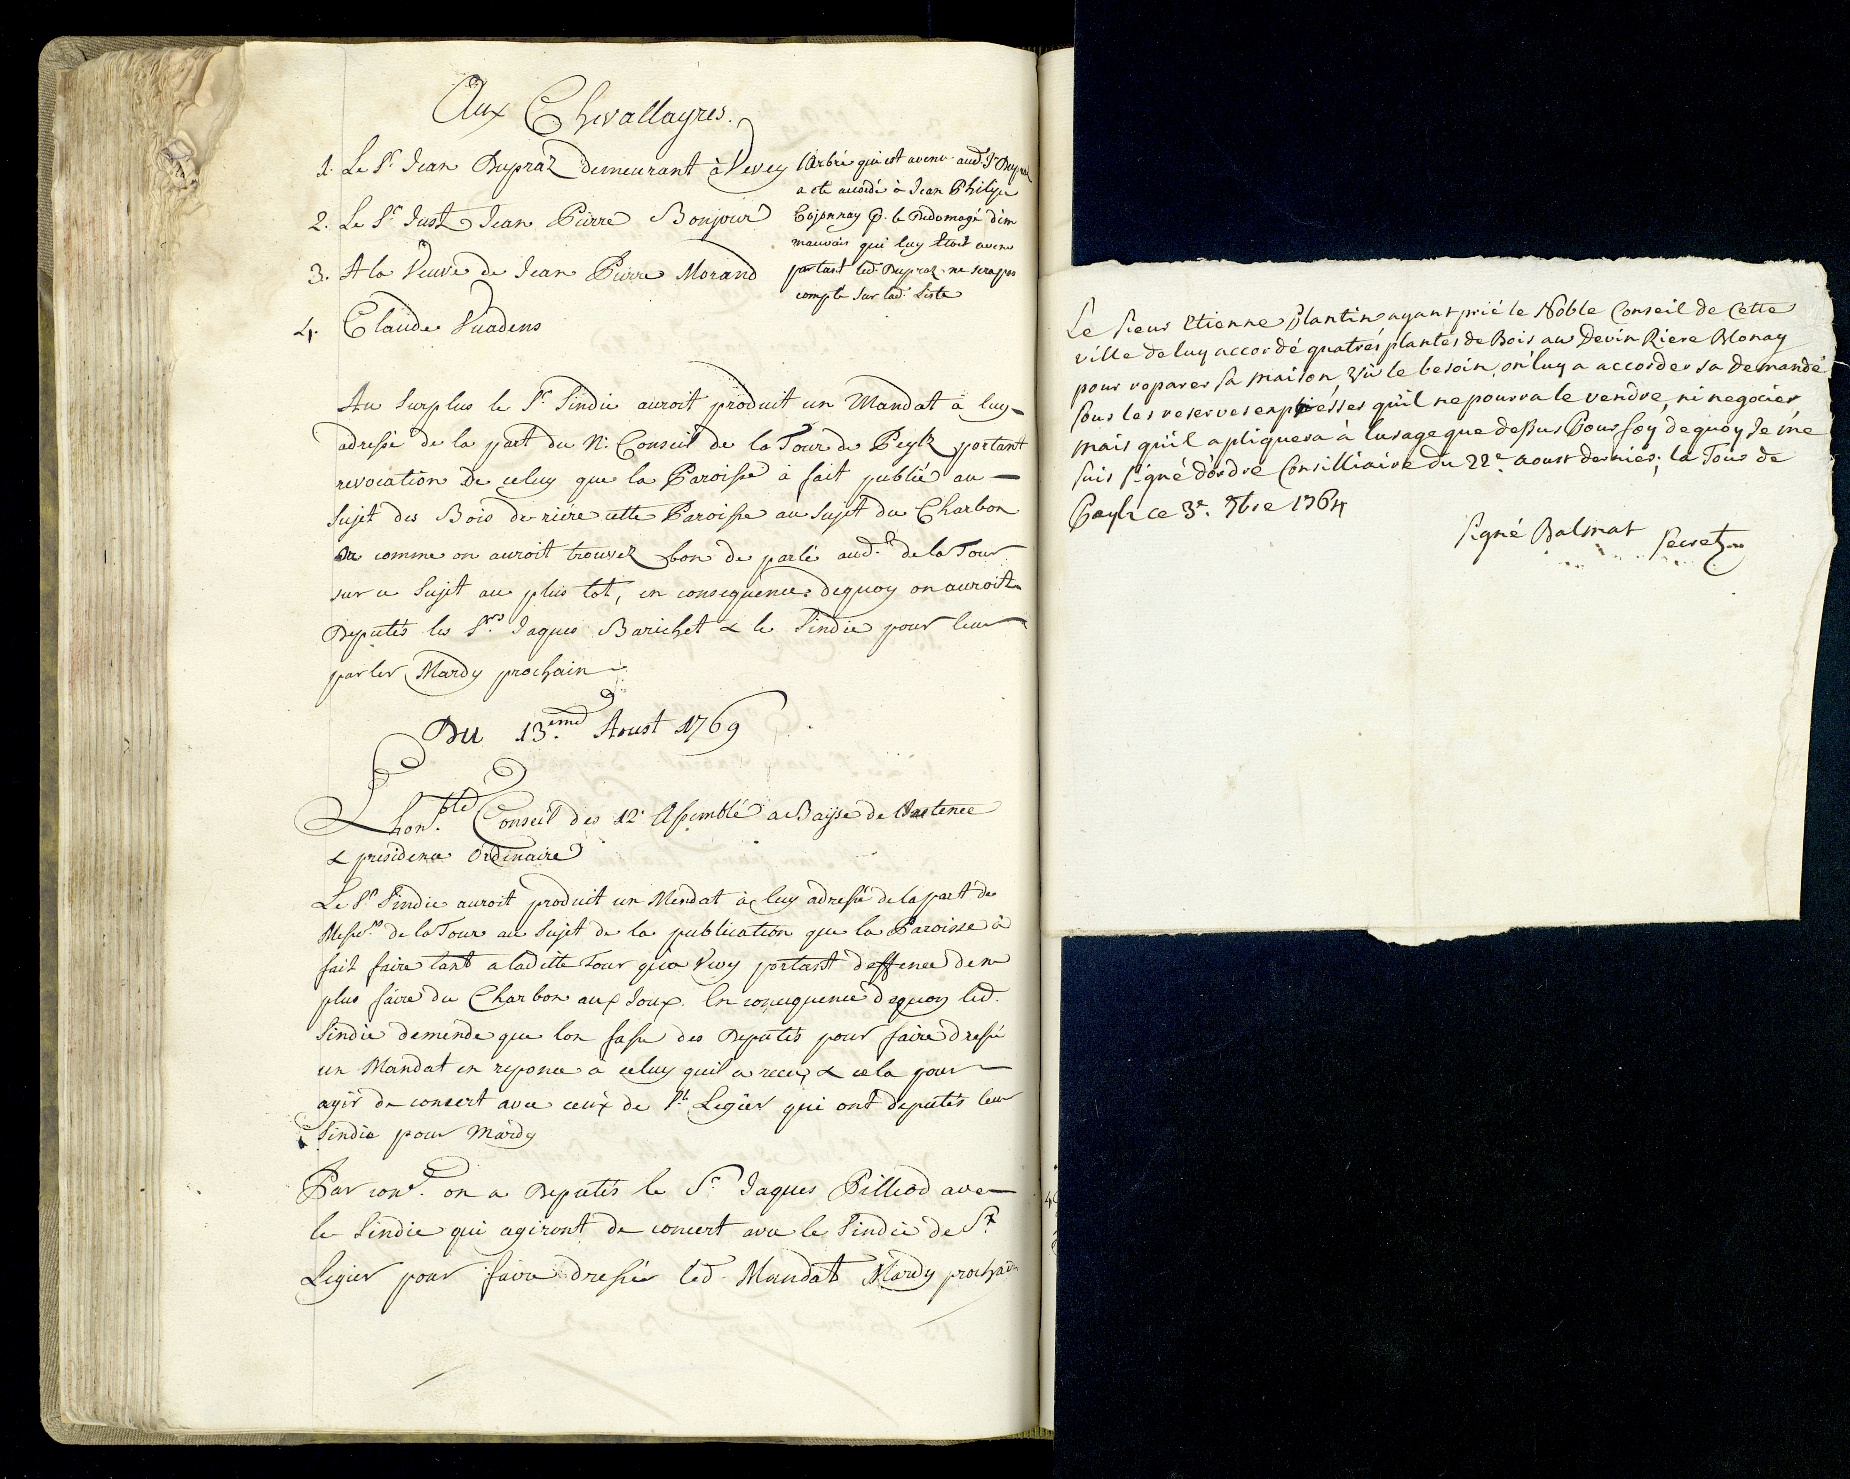 Aux Chevallayres.
1. Le Sr. Jean Dupraz demeurant à Vevey
2. Le Sr. Just Jean Pierre Bonjour
3. A la Veuve de Jean Pierre Morand
4. Claude Vuadens
l'Arbre qui est avenu aud. Sr. Dupraz
a eté accordé à Jean Philipe
Cojonnay p. le Dedomagé d'un
mauvais qui luy étoit avenu
partant led. Dupraz ne sera pas
compté sur lad. Liste
Au Surplus le Sr. Sindic auroit produit un Mandat à luy
adressé de la part du N. Conseil de la Tour de Peylz portant
revocation de celuy que la Paroisse à fait publié au
Sujet des Bois de riére cette Paroisse au Sujet du Charbon
Or comme on auroit trouvez bon de parlé aud. de la Tour
sur ce Sujet au plus tot, en consequence dequoy on auroit
Deputés les Srs. Jaques Barichet & le Sindic pour leur
parler Mardy prochain
Du 13.eme Aoust 1769
Lhon.ble Conseil des 12 Assemblé a Baÿse de
& presidence Ordinaire
Le Sr. Sindic auroit produit un Mendat à luy adressé de la part de
Messrs. de la Tour au Sujet de la publication que la Paroisse à
fait faire tant a laditte Tour qua Vevey portant deffence de ne
plus faire du Charbon aux Joux. En concequence dequoy led.
Sindic demende que lon fasse des Deputés pour faire dressé
un Mandat en reponce a celuy quil a reçu, & cela pour
agir de concert avec ceux de St. Legier qui ont deputés leur
Sindic pour Mardy
Par cons. on a Deputés le Sr. Jaques Pilliod avec
le Sindic qui agiront de concert avec le Sindic de St.
Legier pour faire dressér led. Mandat Mardy prochain
Le Sieur Etienne Plantin ayant prié le Noble Conseil de Cette
ville de luy accordé quatres plantes de Bois au Devin Riere Blonay
pour reparer sa maison, vû le besoin, on luy a accorder sa demande
sous les reserves expresses qu'il ne pourra le vendre, ni negocier
mais qu'il apliquera à lusage que dessus Pour foy dequoy Je me
suis signé d'ordre Consilliaire du 22e. aoust dernier; la Tour de
Peylz ce 3e. 7bre 1764
Signé Balmat Secret.re